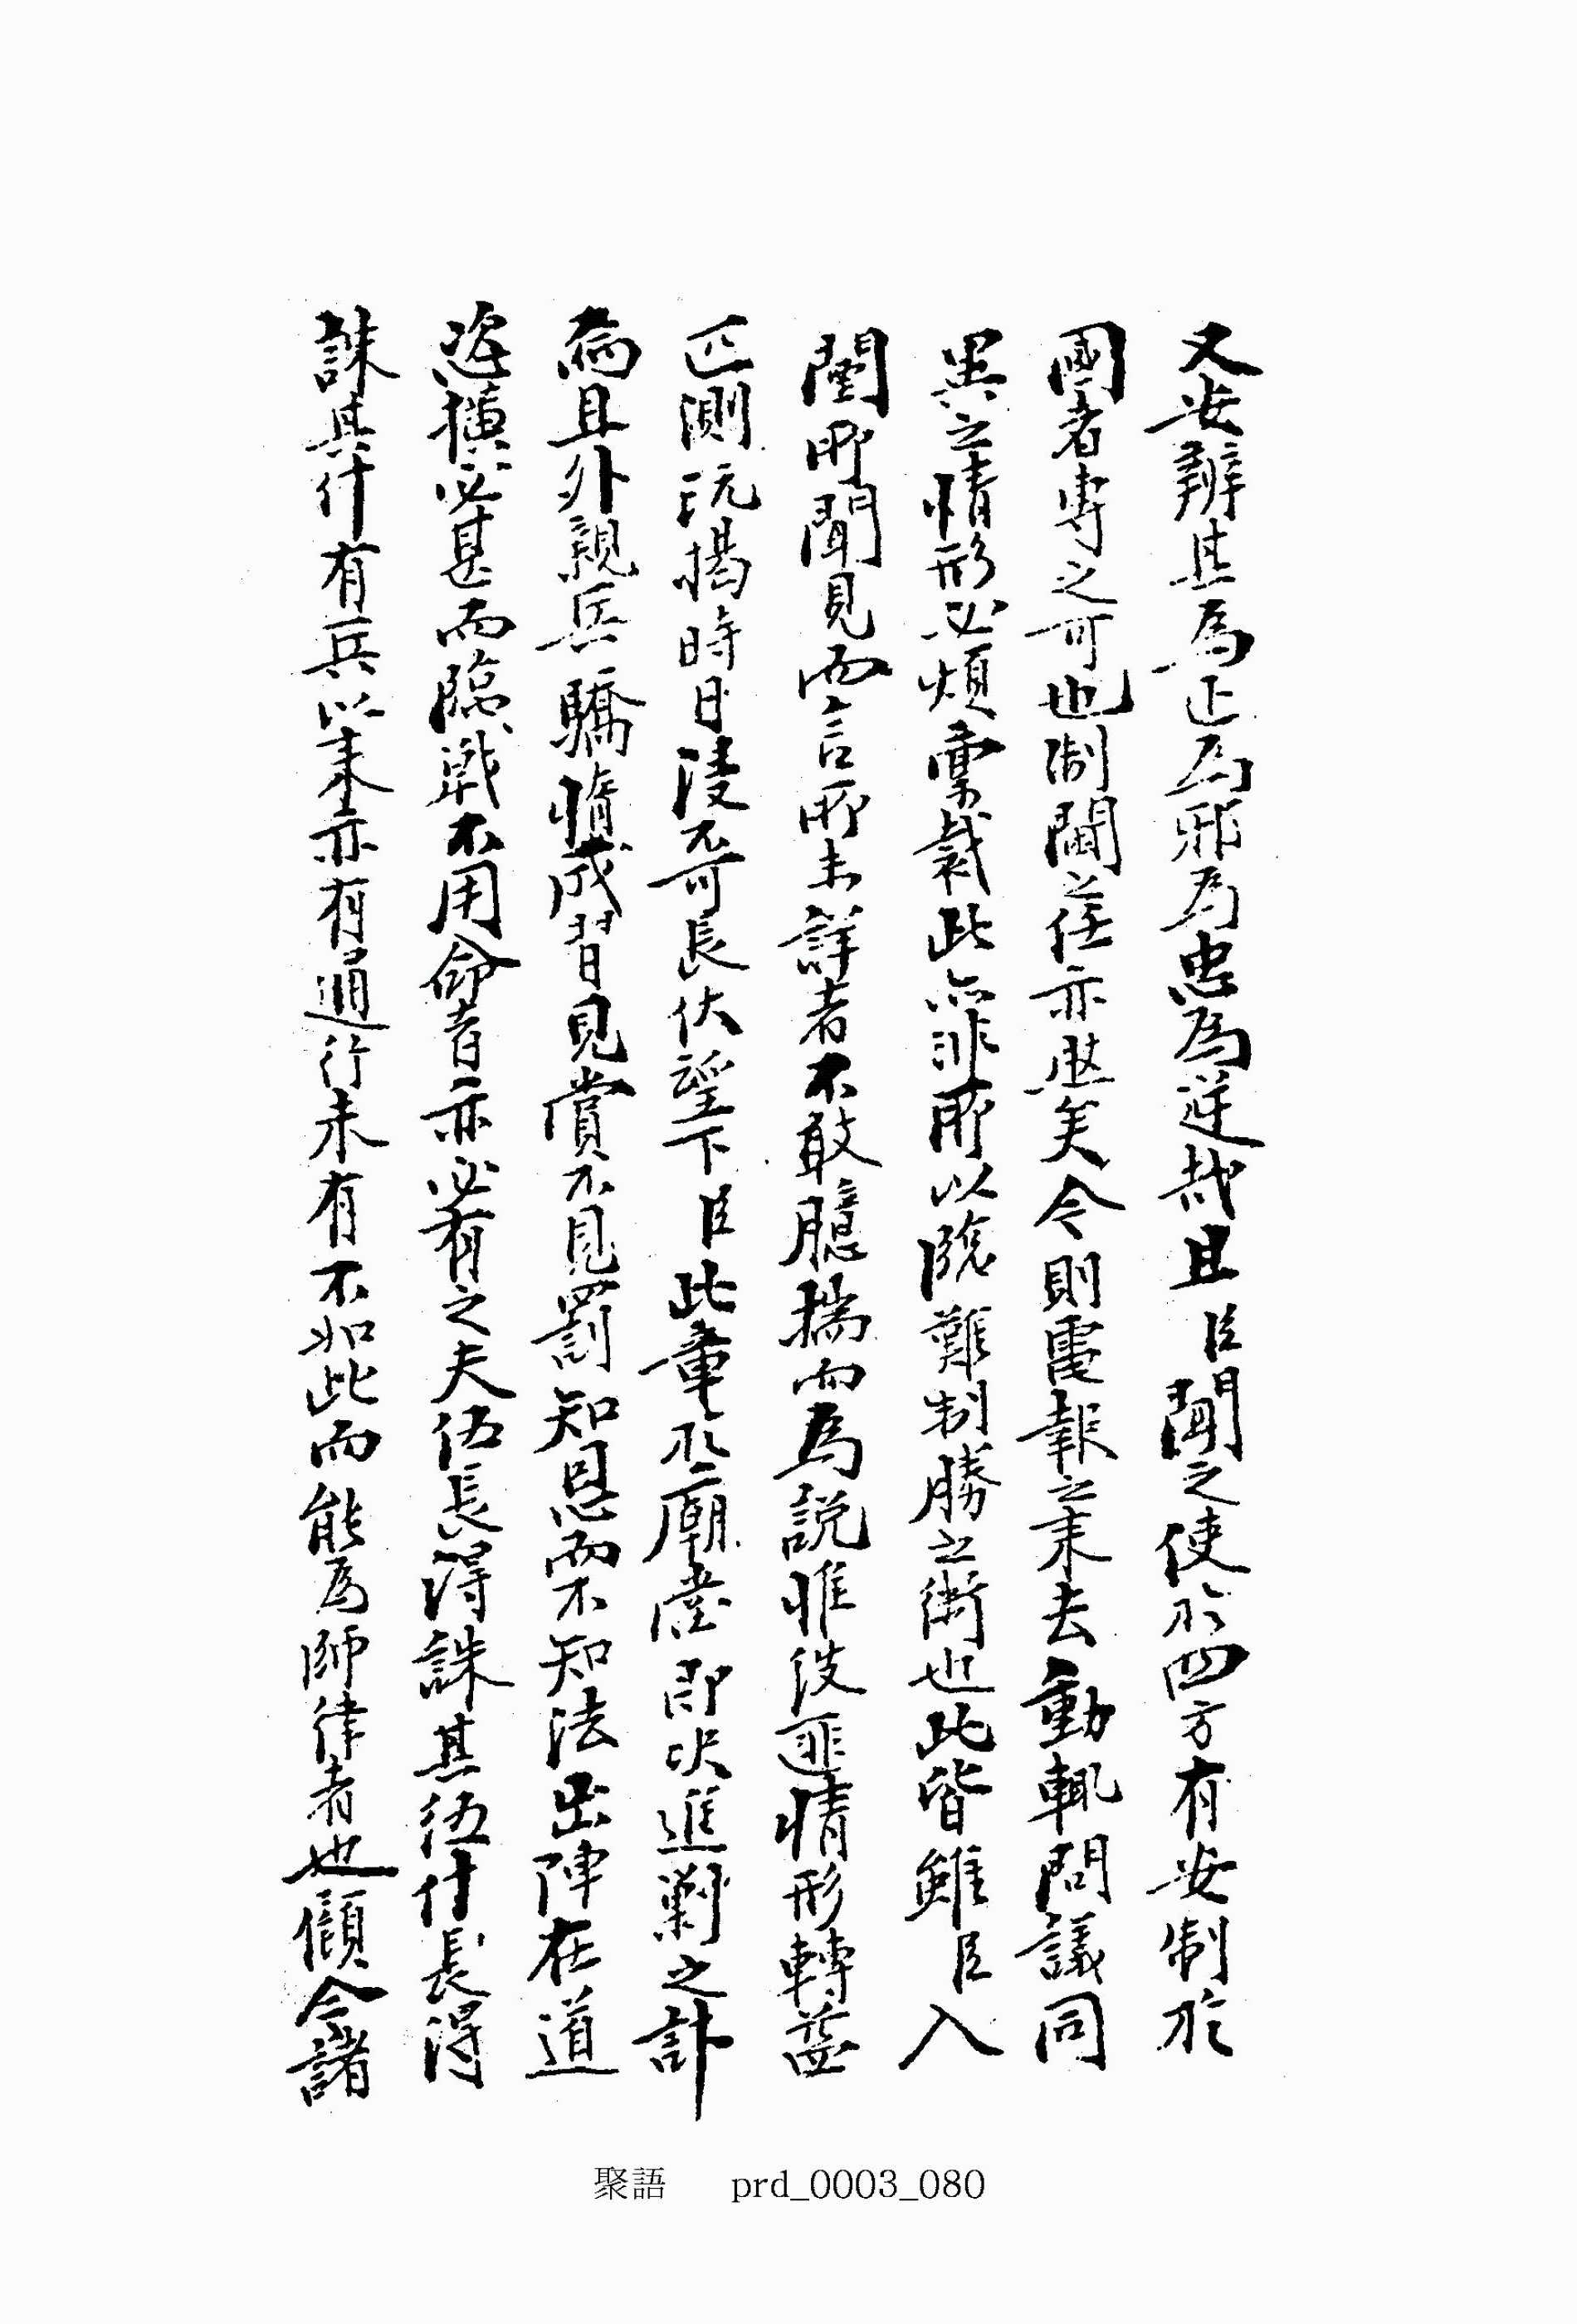 又安辨其爲正爲邪爲忠爲逆哉且臣聞之使於四方有安制於
國者專之可也制閫之任亦然矣今則電報之來去動輒問議同
異之情形必煩稟裁此亦非所以臨難制勝之術也此皆雖臣入
閩所聞見而言所未詳者不敢臆揣而爲說惟彼匪情形轉益
叵測玩愒時日浸不可長伏望下臣此章於廟堂即决進剿之計
焉且外親兵驕惰成習見賞不見罰知恩而不知法出陣在道
恣橫必甚而臨戰不用命者亦必有之夫伍長得誅其伍什長得
誅其什有兵以來亦有通行未有不如此而能爲師律者也願令諸
聚語 prd_0003_080